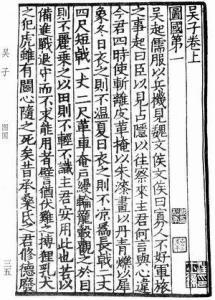 吳子卷上
圖國第一
吳起儒服以兵機見魏文侯文侯曰寡人不好軍旅
之事起曰臣以見占隱以往察來主君何言與心違
今君四時使斬離皮革掩以朱漆畫以丹青爍以犀
象冬日衣之則不溫夏日衣之則不涼為長戟二丈
四尺短戟一丈二尺革車奄戶縵輪籠轂觀之於目
則不麗乘之以田則不輕不識主君安用此也若以
備進戰退守而不求能用者譬猶伏雞之搏狸乳犬
之犯虎雖有鬬心隨之死矣昔承桑氏之君修德廢
吳子
圖國
三五